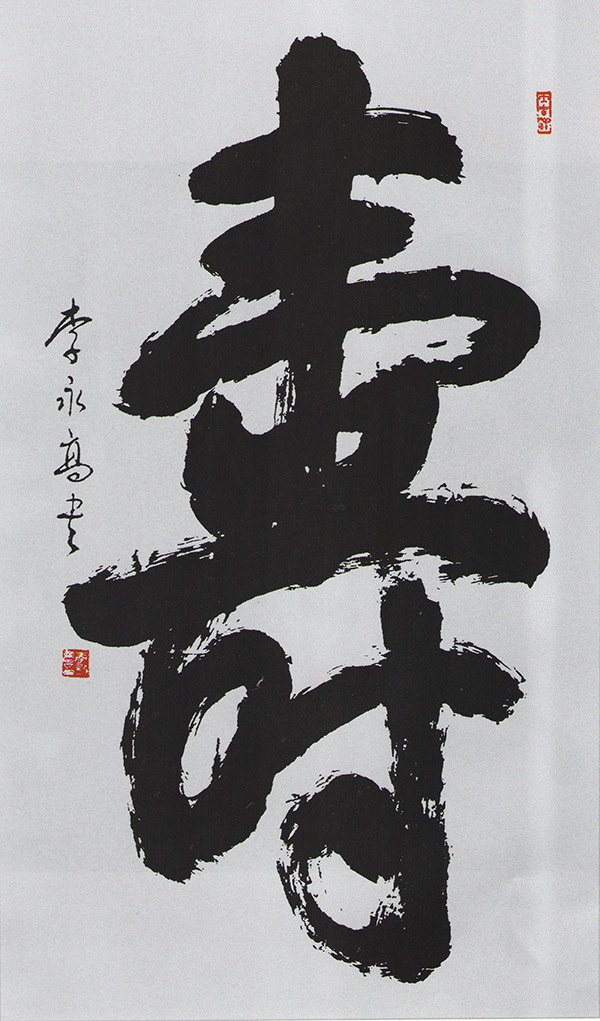 壽
李永高书